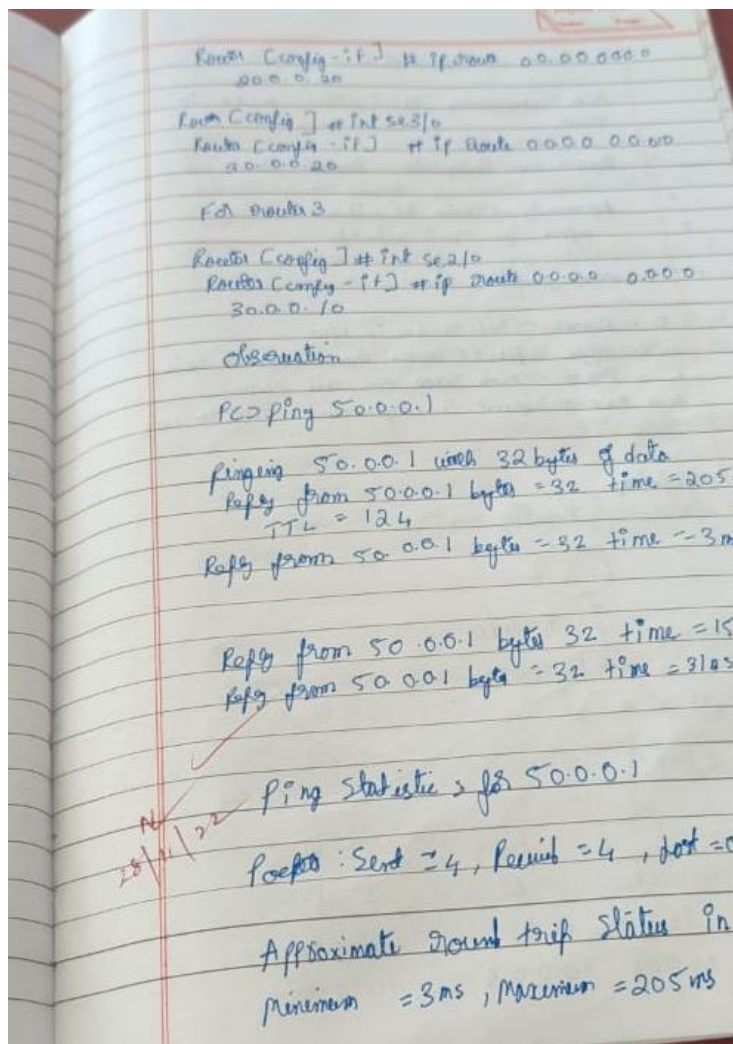 Router [config-if] # ip route 0.0.0.0 0.0.0.0
20.0.0.20
Router [config] # int se3/0
Router [config-if] # ip route 0.0.0.0 0.0.0.0
20.0.0.20
For router 3
Router [config] # int se2/0
Router [config-if] # ip route 0.0.0.0 0.0.0.0
30.0.0.10
Observation
PC> ping 50.0.0.1
Pinging 50.0.0.1 with 32 bytes of data
Reply from 50.0.0.1 bytes = 32 time = 205
TTL = 124
Reply from 50.0.0.1 bytes = 32 time = 3m
Reply from 50.0.0.1 bytes 32 time = 15
Reply from 50.0.0.1 bytes = 32 time = 31
Ping statistics for 50.0.0.1
: Sent = 4, Received = 4, lost = 0
Approximate round trip in
Minimum = 3ms, Maximum = 205 ms